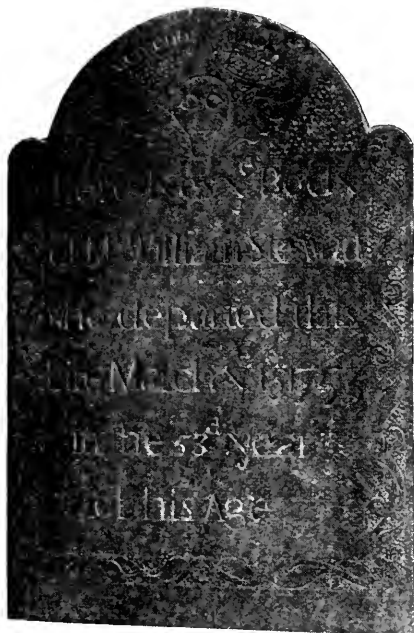 Here lies ye Body
of Mr William Steward
who departed this
Life March ye
in the 53d Year
of his Age